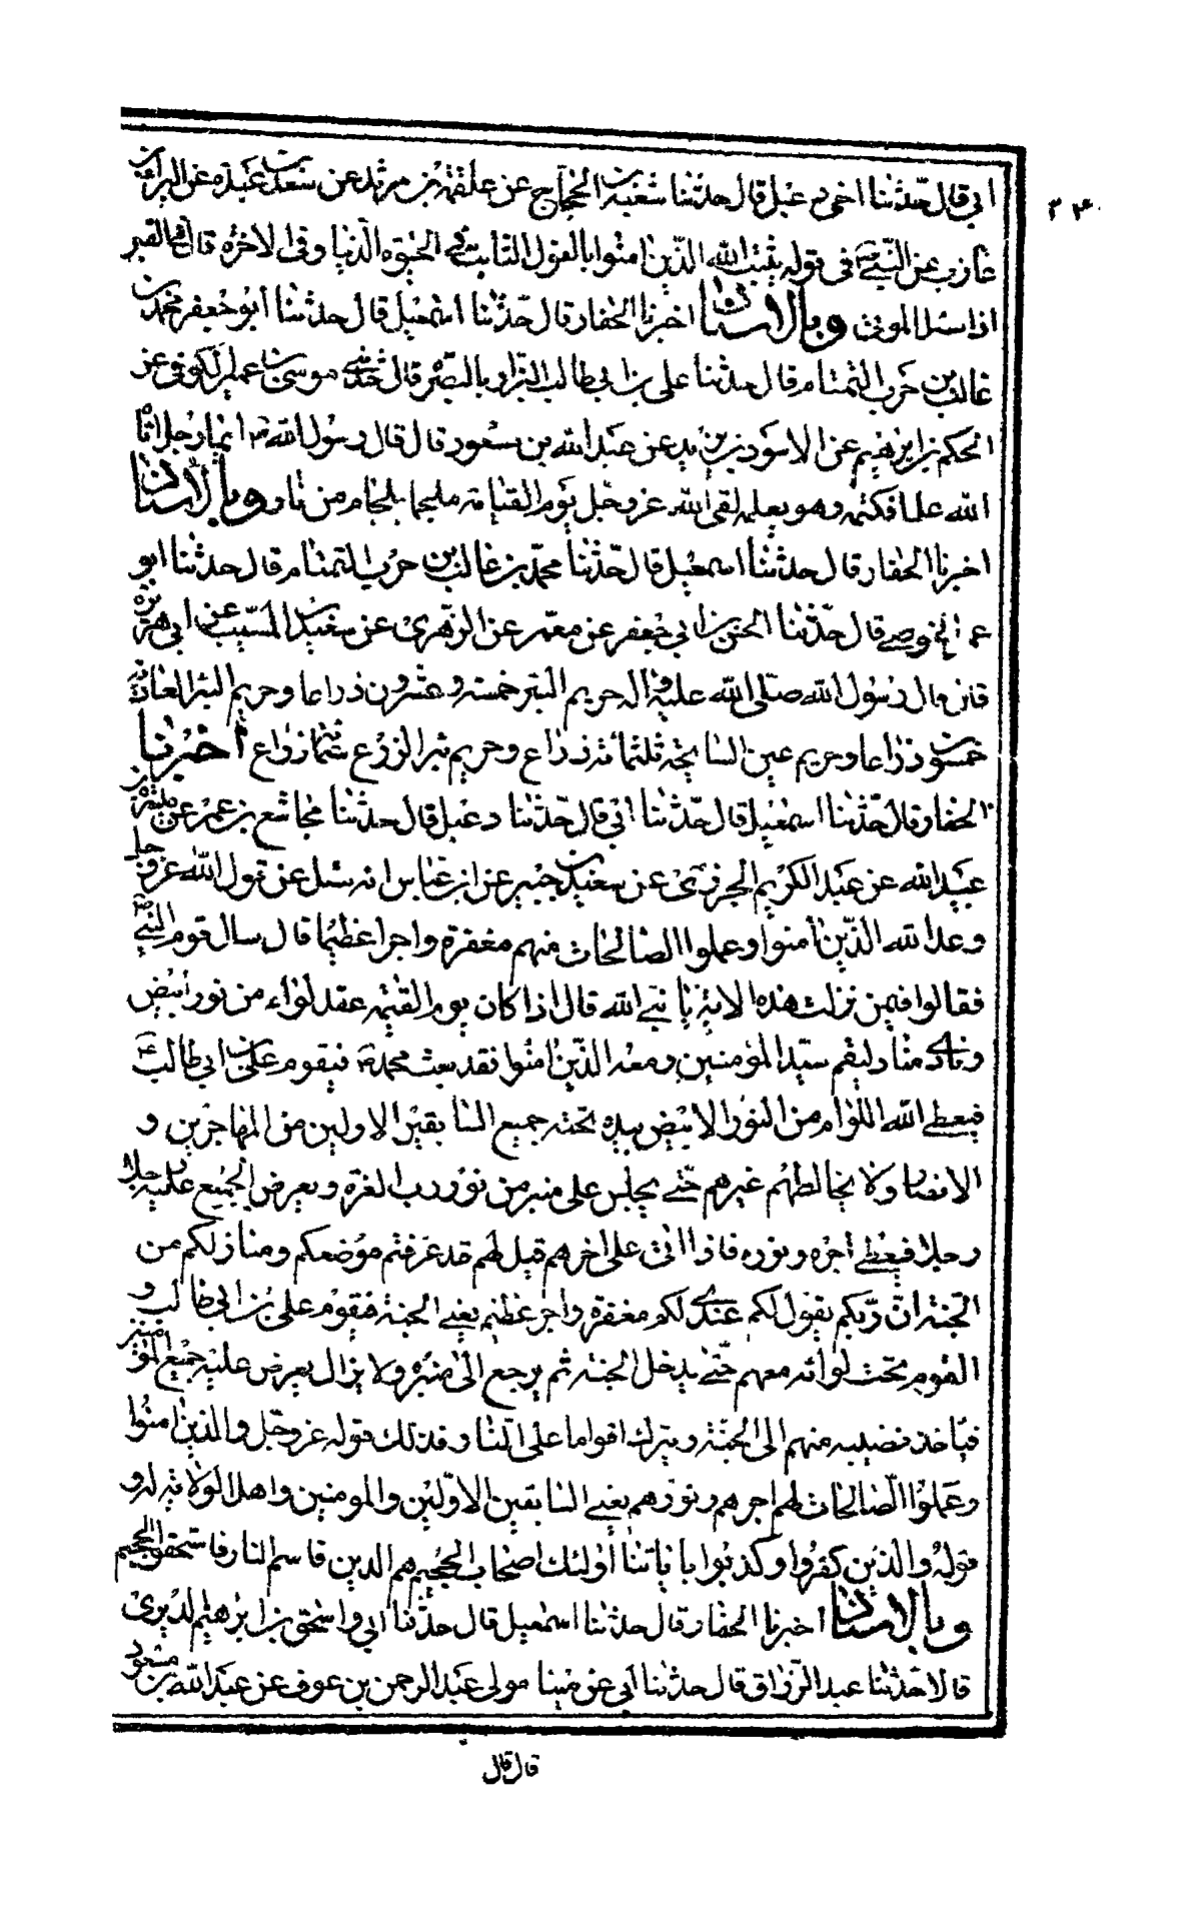 ابي قال حدثنا اخي دعبل قال حدثنا شعبة بن الحجاج عن علقمة بن مرثد عن سعد بن عبيدة عن البراء بن
عازب عن النبي ص في قوله يثبت الله الذين امنوا بالقول الثابت في الحيوة الدنيا وفي الاخرة قال في القبر
اذا سئل الموتى وبالاسناد اخبرنا الحفار قال حدثنا اسمعيل قال حدثنا ابو جعفر محمد بن
غالب بن حرب التمتام قال حدثنا علي بن ابي طالب البزاز بالبصرة قال حدثني موسى بن عمير الكوفي عن
الحكم بن ابرهيم عن الاسود بن يزيد عن عبد الله بن مسعود قال قال رسول الله ص ايما رجل اتاه
الله علما فكتمه وهو يعلمه لقى الله عز وجل يوم القيامة ملجما بلجام من نار وبالاسناد
اخبرنا الحفار قال حدثنا اسمعيل قال حدثنا محمد بن غالب بن حرب التمتام قال حدثنا ابو
عمر الحوضي قال حدثنا الحسن بن ابي جعفر عن معمر عن الزهري عن سعيد بن المسيب عن ابي هريرة
قال قال رسول الله صلى الله عليه واله حريم البئر خمسة وعشرون ذراعا وحريم البئر العادية
خمسون ذراعا وحريم عين السايحة ثلثمائة ذراع وحريم بئر الزرع ستمائة ذراع اخبرنا
الحفار قال حدثنا اسمعيل قال حدثنا ابي قال حدثنا دعبل قال حدثنا مجاشع بن عمر عن ميسرة بن
عبيد الله عن عبد الكريم الجزري عن سعيد بن جبير عن ابن عباس انه سئل عن قول الله عز وجل
وعد الله الذين امنوا وعملوا الصالحات منهم مغفرة واجرا عظيما قال سال قوم النبي ص
فقالوا فيمن نزلت هذه الاية يا نبي الله قال اذا كان يوم القيمة عقد لواء من نور ابيض
ونادى مناد ليقم سيد المؤمنين ومعه الذين امنوا فقد بعث محمد ص فيقوم علي بن ابي طالب ع
فيعطى الله اللواء من النور الابيض بيده تحته جميع السابقين الاولين من المهاجرين و
الانصار ولا يخالطهم غيرهم حتى يجلس على منبر من نور رب العزة ويعرض الجميع عليه رجلا
رجلا فيعطى اجره ونوره فاذا اتى على اخرهم قيل لهم قد عرفتم موضعكم ومنازلكم من
الجنة ان ربكم يقول لكم عندي لكم مغفرة واجر عظيم يعني الجنة فيقوم علي بن ابي طالب و
القوم تحت لوائه معهم حتى يدخل الجنة ثم يرجع الى منبره ولا يزال يعرض عليه جميع المؤمنين
فياخذ نصيبه منهم الى الجنة ويترك اقواما على النار وذلك قوله عز وجل والذين امنوا
وعملوا الصالحات لهم اجرهم ونورهم يعني السابقين الاولين والمومنين واهل الولاية له و
قوله والذين كفروا وكذبوا باياتنا اولئك اصحاب الجحيم هم الذين قاسم النار فاستحقوا الجحيم
وبالاسناد اخبرنا الحفار قال حدثنا اسمعيل قال حدثنا ابي واسحق بن ابرهيم الديري
قالا حدثنا عبد الرزاق قال حدثنا ابي عن مينا مولى عبد الرحمن بن عوف عن عبد الله بن مسعود
قال قال